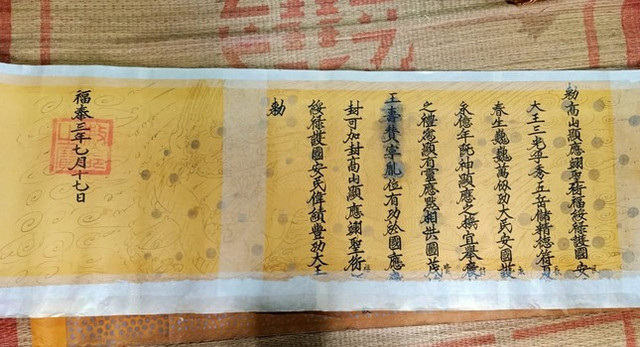 勅高山顯應翊聖衍福綏祿護國安民
大王三光孕秀五岳儲精德符
春生巍巍萬仭功大民安國
永億年既神顯應之 宜舉
之禮寔顯有靈應默相洪圖茂
王壽贊寧胤位有功於國應
封可加封高山顯應翊聖衍福
綏祿護國安民偉績豐功大王
勅
福泰三年七月十七日